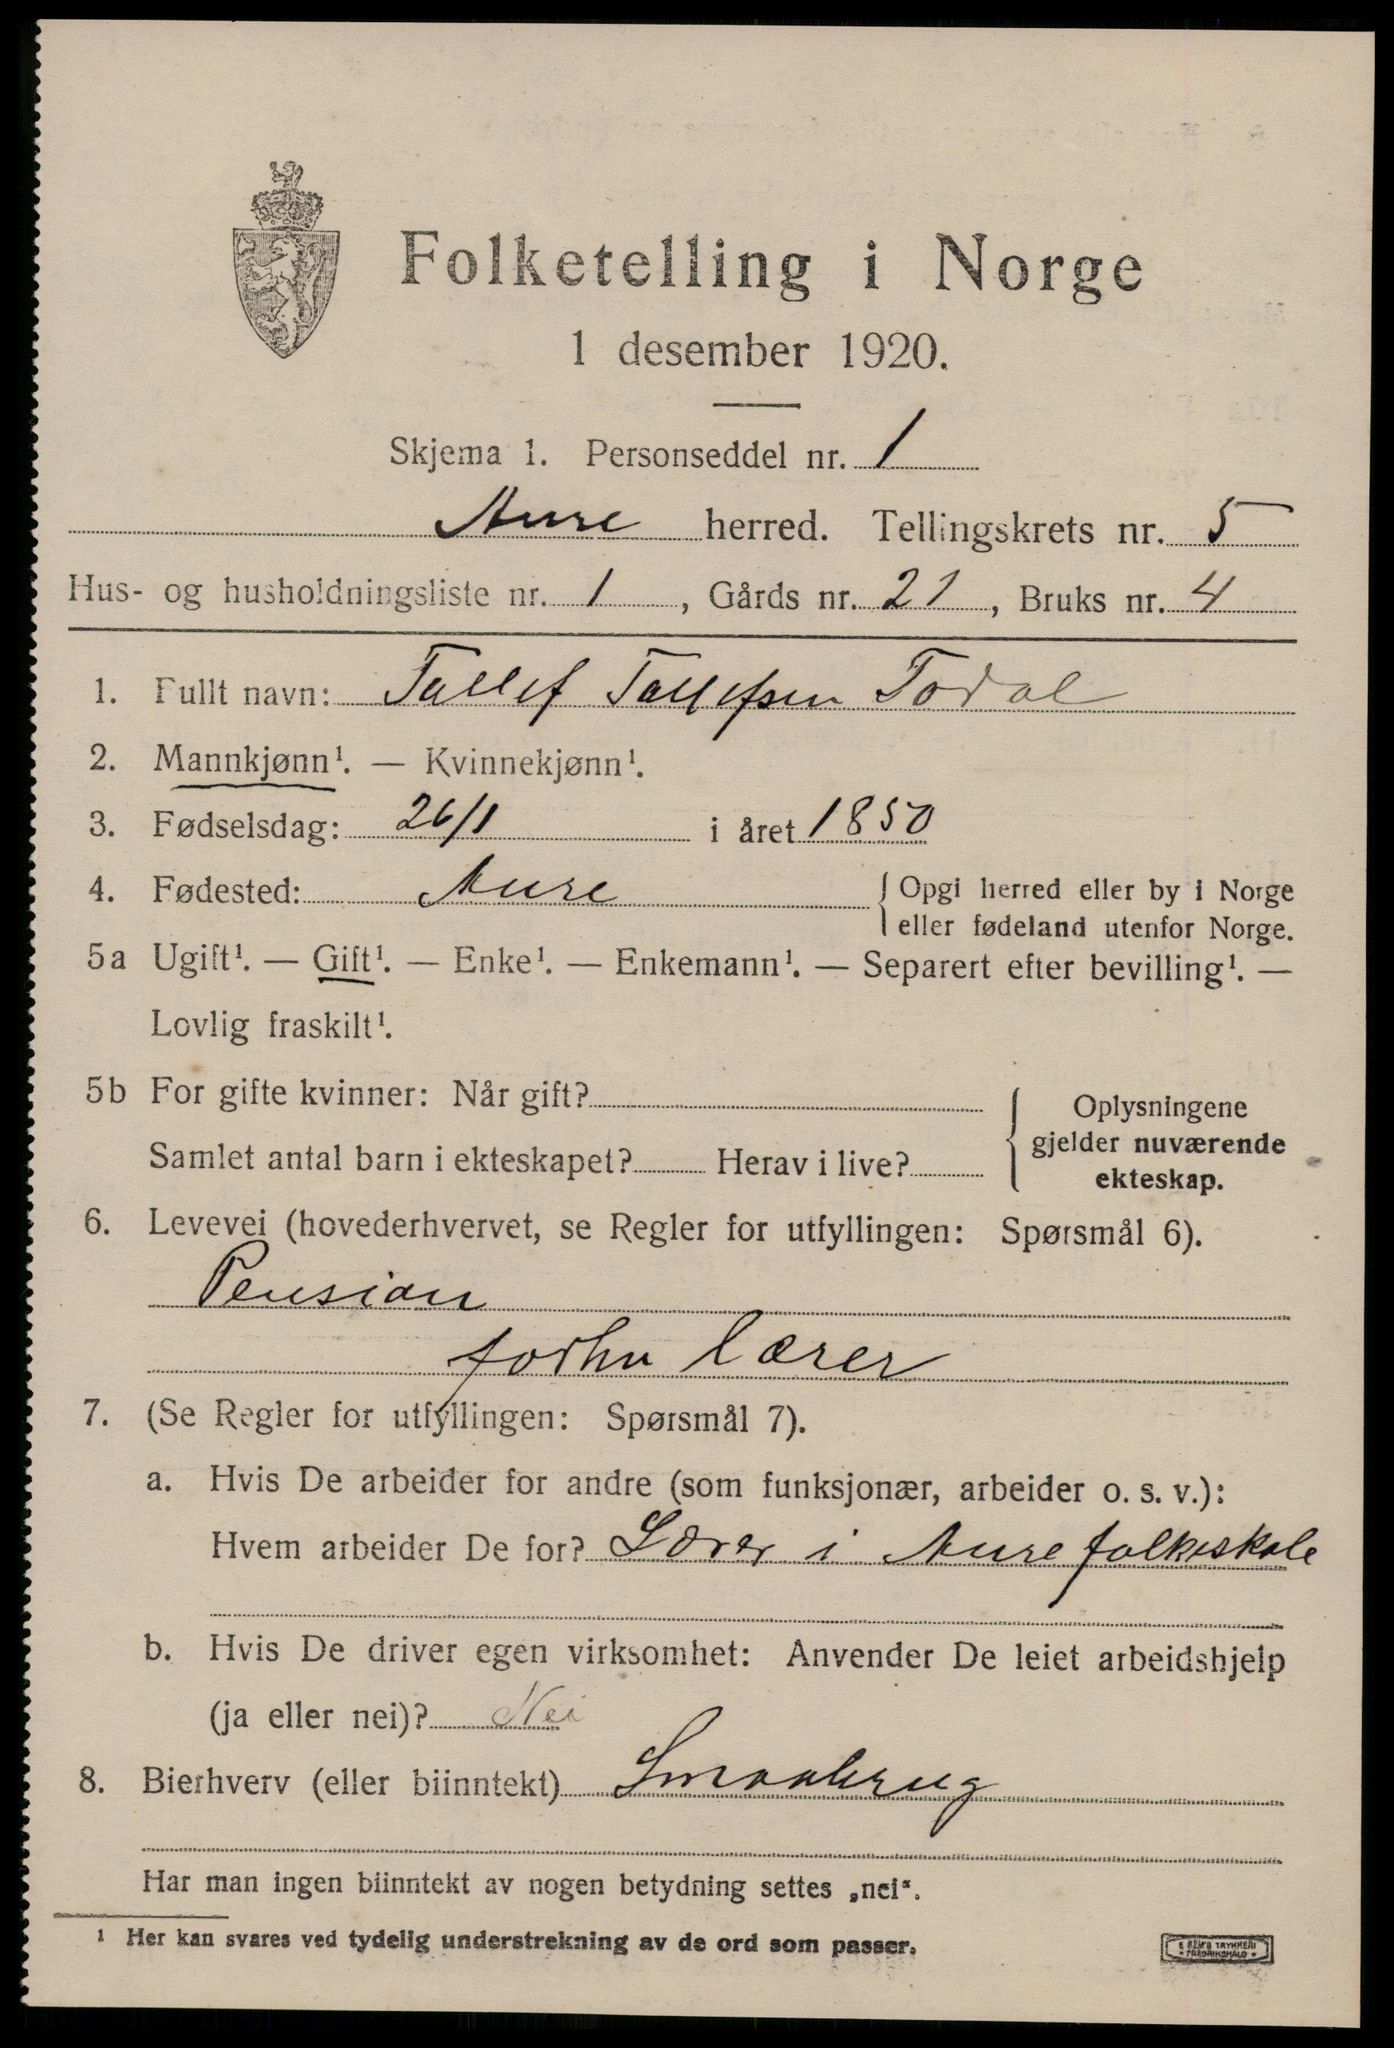 Folketelling i Norge
1 desember 1920.
Skjema 1. Personseddel nr. 1
Aure herred. Tellingskrets nr. 5
Hus- og husholdningsliste nr. 1, Gårds nr. 21, Bruks nr. 4
1. Fullt navn: Tollef Tollefsen Todal
2. Mannkjønn¹. — Kvinnekjønn¹.
3. Fødselsdag: 26/1 i året 1850
4. Fødested: Aure { Opgi herred eller by i Norge
eller fødeland utenfor Norge.
5a Ugift¹. — Gift¹. — Enke¹. — Enkemann¹. — Separert efter bevilling¹. —
Lovlig fraskilt¹.
5b For gifte kvinner: Når gift?
Samlet antal barn i ekteskapet? Herav i live?
Oplysningene
gjelder nuværende
ekteskap.
6. Levevei (hovederhvervet, se Regler for utfyllingen: Spørsmål 6).
Pension
forhv lærer
7. (Se Regler for utfyllingen: Spørsmål 7).
a. Hvis De arbeider for andre (som funksjonær, arbeider o. s. v.):
Hvem arbeider De for? Lærer i Aure folkeskole
b. Hvis De driver egen virksomhet: Anvender De leiet arbeidshjelp
(ja eller nei)? Nei
8. Bierhverv (eller biinntekt) Smaabrug
Har man ingen biinntekt av nogen betydning settes „nei“.
¹ Her kan svares ved tydelig understrekning av de ord som passer.